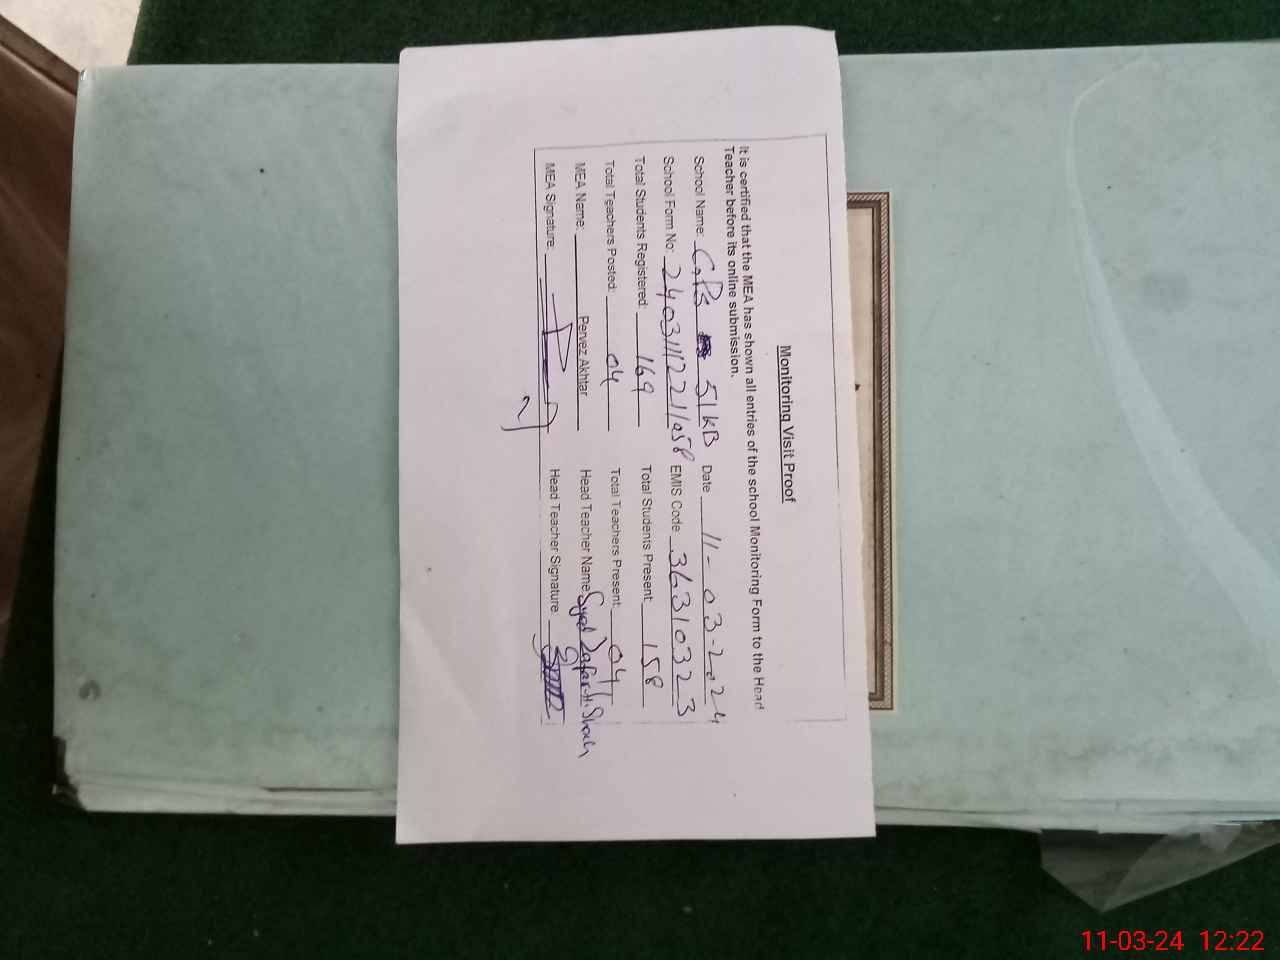 Monitoring Visit Proof
It is certified that the MEA has shown all entries of the school Monitoring Form to the Head
Teacher before its online submission.
School Name: GPS 51KB Date 11-03-2024
School Form No: EMIS Code 36310323
Total Students Registered: 169 Total Students Present: 158
Total Teachers Posted: 04 Total Teachers Present: 04
MEA Name: Pervez Akhtar Head Teacher Name: Syed Zafar H. Shah
MEA Signature: Head Teacher Signature:
11-03-24 12:22